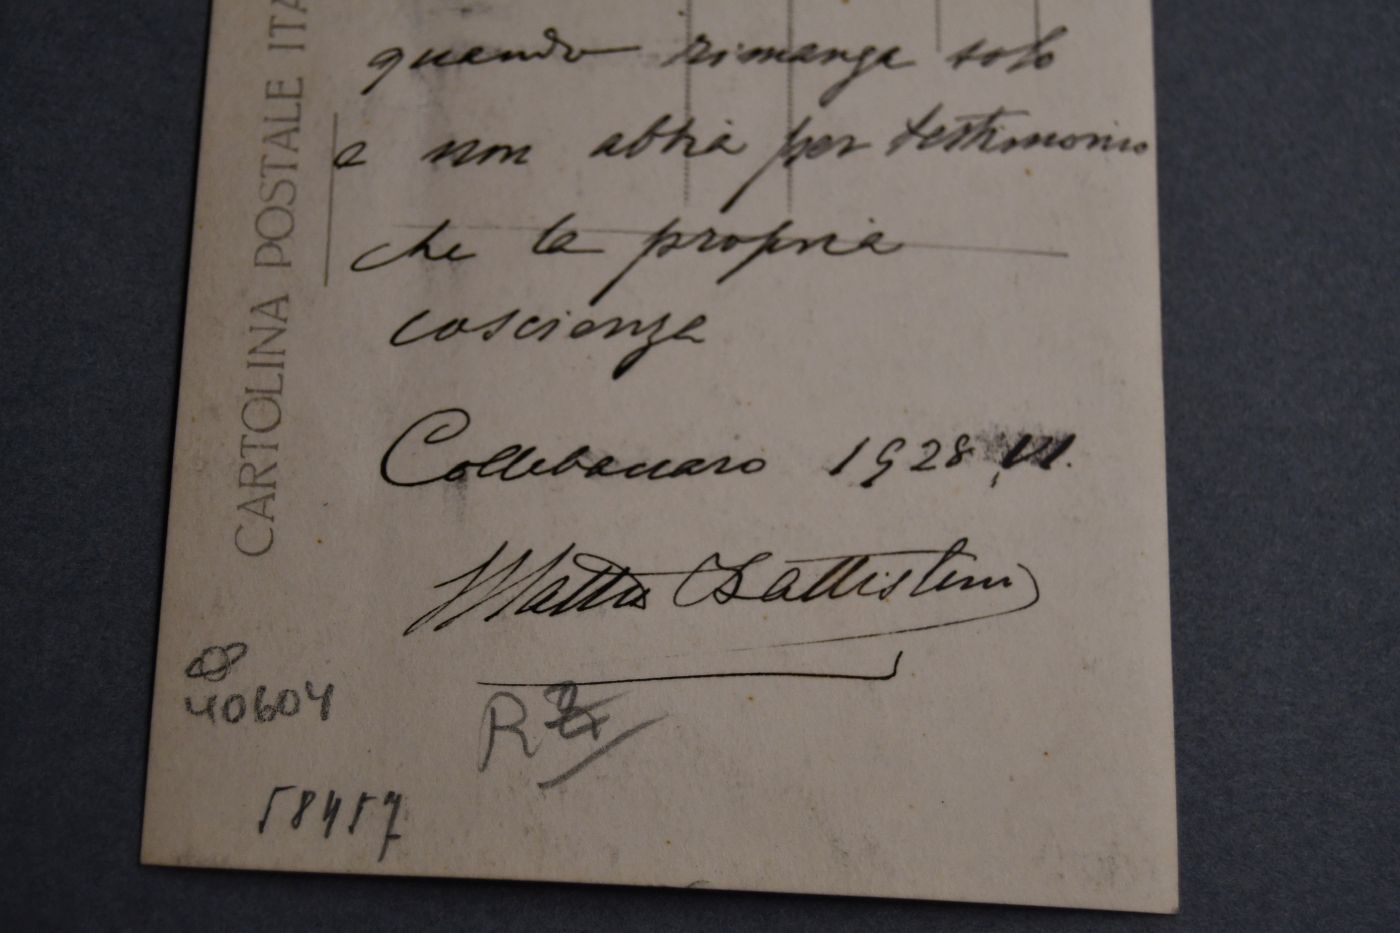 quando rimanga solo
e non abbia per testimonio
che la propria
coscienza
Collebaccaro 1928 VI.
Mattia Battistini
CARTOLINA POSTALE ITA
40604
R
58457